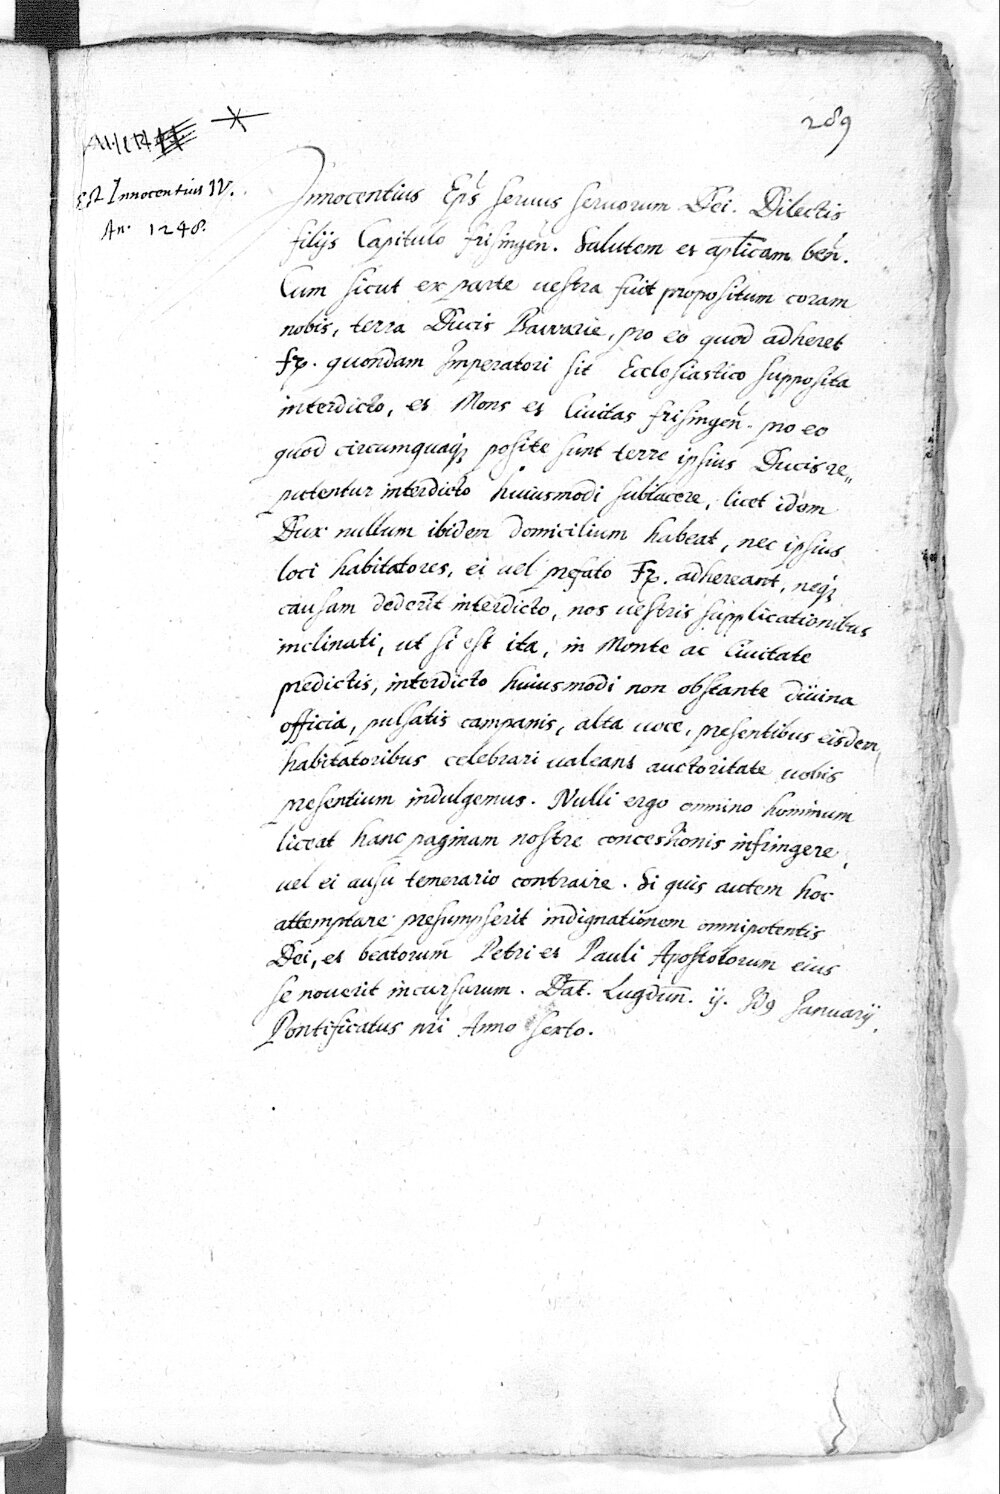 289
Est Innocentius IV.
An. 1248.
Innocentius Ep̃s seruus seruorum Dei. Dilectis
filijs Capitulo frisingeñ. Salutem et apłicam beñ.
Cum sicut ex parte uestra fuit propositum coram
nobis, terra Ducis Bauuarie, pro eo quod adheret
Fr̃. quondam Imperatori sit Ecclesiastico supposita
interdicto, et Mons et Ciuitas frisingeñ. pro eo
quod circumquaqꝫ posite sunt terre ipsius Ducis re„
putentur interdicto huiusmodi subiacere, licet idem
Dux nullum ibidem domicilium habeat, nec ipsius
loci habitatores, ei uel prefato Fr̃. adhereant, neqꝫ
causam dederĩt interdicto, nos uestris supplicationibus
inclinati, ut si est ita, in Monte ac Ciuitate
predictis, interdicto huiusmodi non obstante diuina
officia, pulsatis campanis, alta uoce, presentibus eisdem
habitatoribus celebrari ualeant auctoritate uobis
presentium indulgemus. Nulli ergo omnino hominum
liceat hanc paginam nostre concessionis infringere,
uel ei ausu temerario contraire. Si quis autem hoc
attemptare presumpserit indignationem omnipotentis
Dei, et beatorum Petri et Pauli Apostolorum eius
se nouerit incursurum. Dat. Lugduñ. ij. Id9 Januarij,
Pontificatus nr̃i Anno sexto.